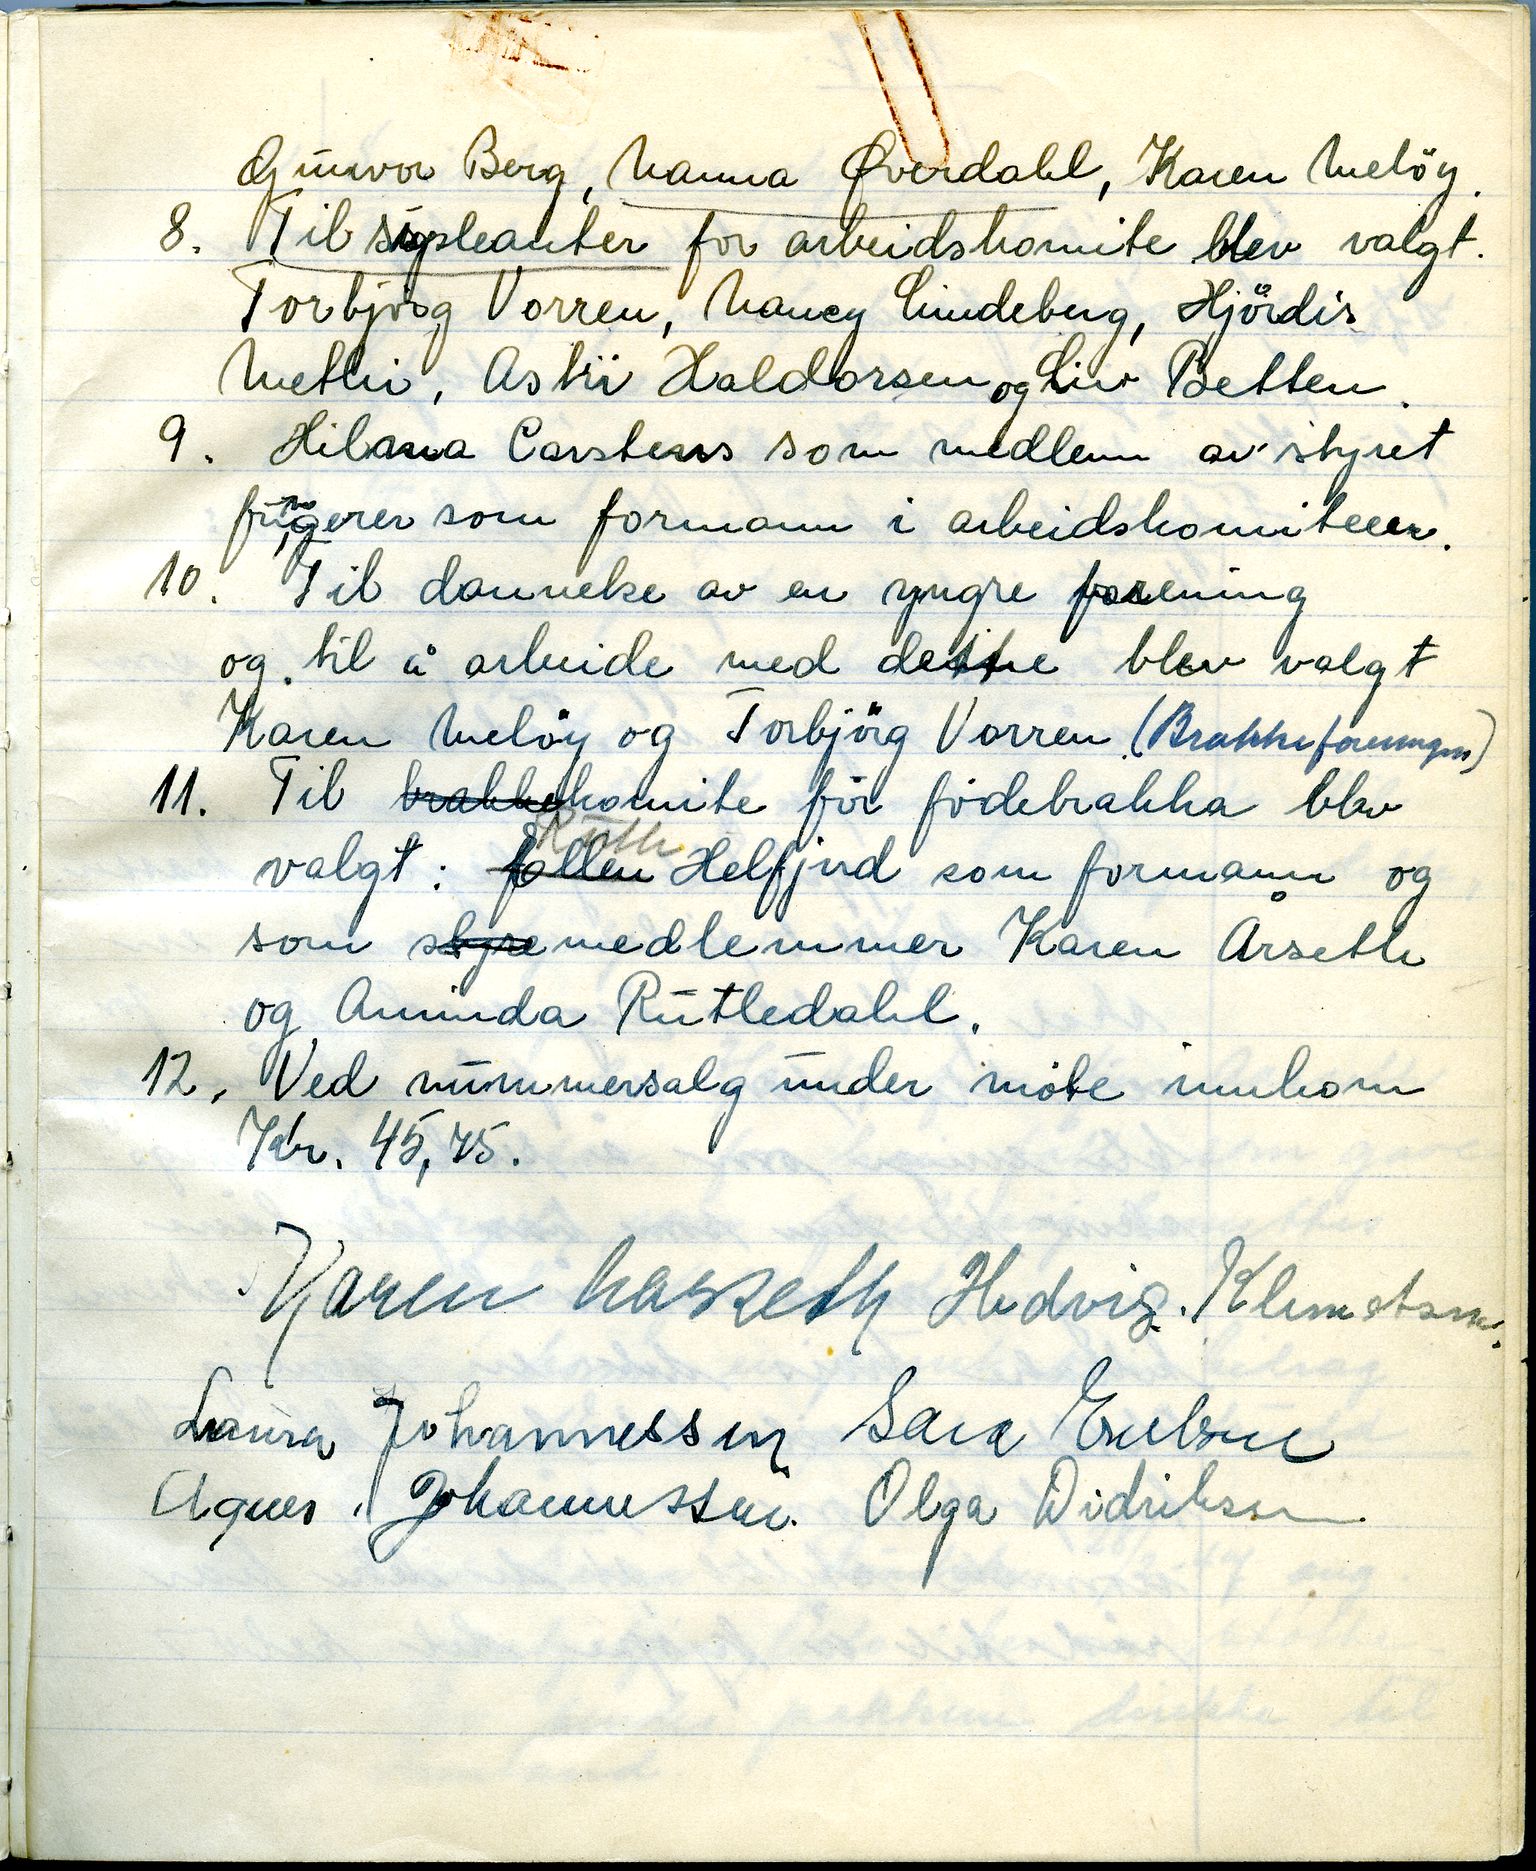 Gunvor Berg, Nanna Øverdahl, Karen Meløy.
8. Til supleanter for arbeidskomite blev valgt.
Torbjørg Vorren, Nancy Lindeberg, Hjördis
Methi, Astri Haldorsen og Liv Betten.
9. Hilana Carstens som medlem av styret
fungerer som formann i arbeidskomiteen.
10. Til dannelse av en yngre forening
og til å arbeide med dette blev valgt
Karen Meløy og Torbjörg Vorren (Brakkeforeningen)
11. Til brakkekomite for fødebrakka blev
valgt: Ruth Helfjord som formann og
som styremedlemmer Karen Årseth
og Aminda Rutledahl.
12. Ved nummersalg under møte innkom
Kr. 45,75.
Karen Aarseth Hedvig Klemetsen.
Laura Johannessen Sara
Agnes Johannessen. Olga Didriksen